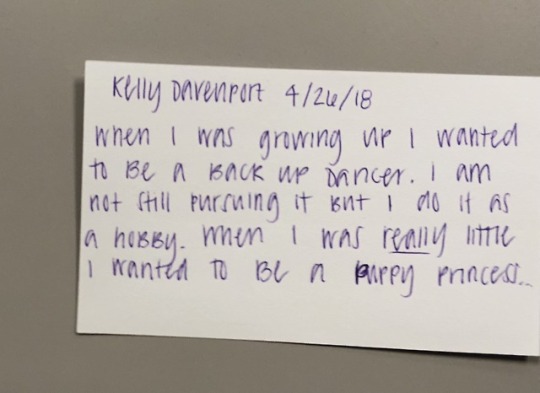 Kelly Davenport 4/26/18
When I was growing up I wanted
to be a back up dancer. I am
not still pursuing it but I do it as
a hobby. When I was really little
I wanted to be a puppy princess...